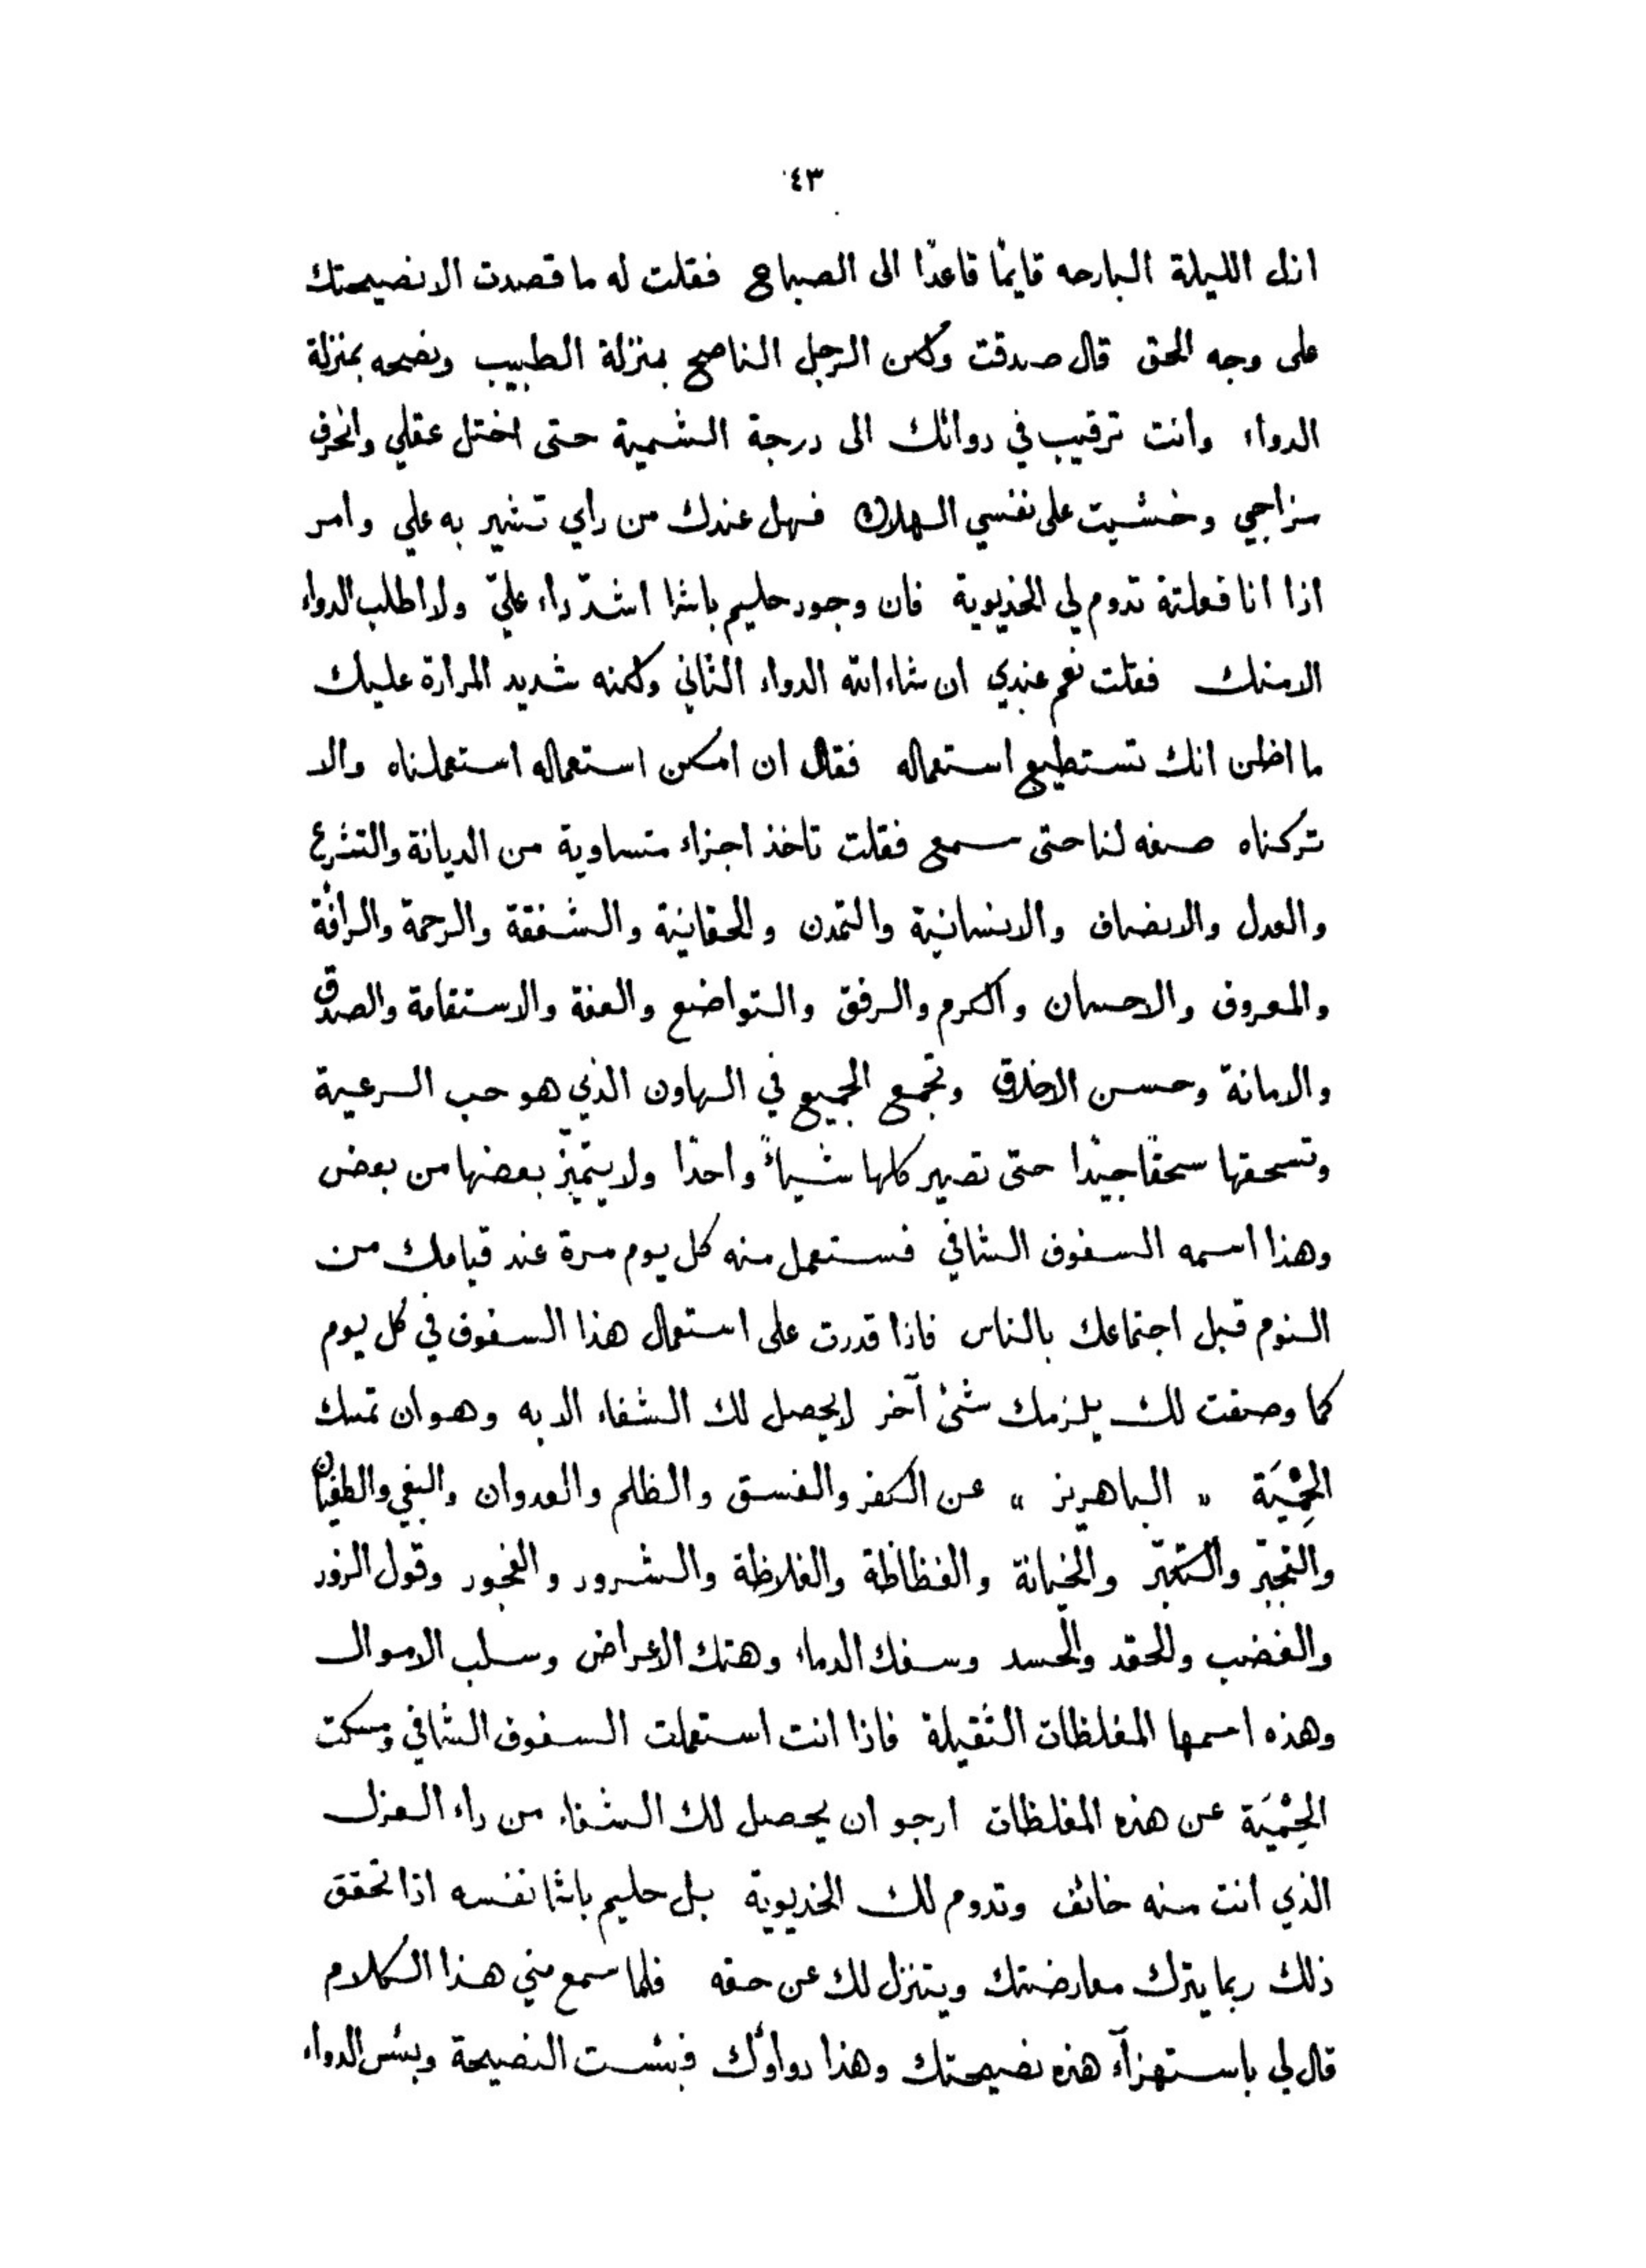 ٤٣
ازل الليلة البارحه قايمًا قاعدًا الى الصباح فقلت له ما قصدت الا نصيحتك
على وجه الحق قال صدقت ولكن الرجل الناصح بمنزلة الطبيب ونصحه بمنزلة
الدواء وانت ترقيب في دوائك الى درجة السّمية حتى اختل عقلي وانحرف
مزاجي وخشيت على نفسي الهلاك فهل عندك من راي تشير به علي وامر
اذا انا فعلته تدوم لي الخديوية فان وجود حليم باشا اشدّ داء عليّ ولا اطلب الدواء
الا منك فقلت نعم عندي ان شاء الله الدواء الثاني ولكنه شديد المرارة عليك
ما اظن انك تستطيع استعماله فقال ان امكن استعماله استعملناه والا
تركناه صفه لنا حتى سمع فقلت تاخذ اجزاء متساوية من الديانة والتشرع
والعدل والانصاف والانسانية والتمدن والحقانية والشفقة والرحمة والرأفة
والمعروف والاحسان والكرم والرفق والتواضع والعفة والاستقامة والصدق
والامانة وحسن الاخلاق وتجمع الجميع في الهاون الذي هو حب الرعية
وتسحقها سحقًا جيدًا حتى تصير كلها شيأً واحدًا ولا يتميّز بعضها من بعض
وهذا اسمه السفوف الشافي فستعمل منه كل يوم مرة عند قيامك من
النوم قبل اجتماعك بالناس فاذا قدرت على استعمال هذا السفوف في كل يوم
كما وصفت لك يلزمك شئ آخر لا يحصل لك الشفاء الا به وهو ان تمسك
الحِمْيَة " الباهريز " عن الكفر والفسق والظلم والعدوان والبغي والطغيان
والتجبّر والتكبّر والخيانة والفظاظة والغلاظة والشرور والفجور وقول الزور
والغضب والحقد والحسد وسفك الدماء وهتك الاعراض وسلب الاموال
وهذه اسمها المغلظات الثقيلة فاذا انت استعملت السفوف الشافي ومسكت
الحِمْيَة عن هذه المغلظات ارجو ان يحصل لك الشفاء من داء العزل
الذي انت منه خائف وتدوم لك الخديوية بل حليم باشا نفسه اذا تحقق
ذلك ربما يترك معارضتك ويتنزل لك عن حقه فلما سمع مني هذا الكلام
قال لي باستهزآء هذه نصيحتك وهذا دواؤك فبئست النصيحة وبئس الدواء